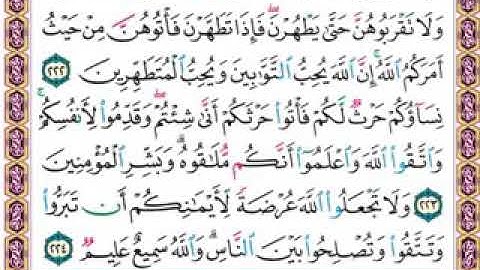 وَلَا تَقْرَبُوهُنَّ حَتَّىٰ يَطْهُرْنَ ۖ فَإِذَا تَطَهَّرْنَ فَأْتُوهُنَّ مِنْ حَيْثُ
أَمَرَكُمُ اللَّهُ ۚ إِنَّ اللَّهَ يُحِبُّ التَّوَّابِينَ وَيُحِبُّ الْمُتَطَهِّرِينَ ٢٢٢
نِسَاؤُكُمْ حَرْثٌ لَّكُمْ فَأْتُوا حَرْثَكُمْ أَنَّىٰ شِئْتُمْ ۖ وَقَدِّمُوا لِأَنفُسِكُمْ ۚ
وَاتَّقُوا اللَّهَ وَاعْلَمُوا أَنَّكُم مُّلَاقُوهُ ۗ وَبَشِّرِ الْمُؤْمِنِينَ
٢٢٣ وَلَا تَجْعَلُوا اللَّهَ عُرْضَةً لِّأَيْمَانِكُمْ أَن تَبَرُّوا
وَتَتَّقُوا وَتُصْلِحُوا بَيْنَ النَّاسِ ۗ وَاللَّهُ سَمِيعٌ عَلِيمٌ ٢٢٤